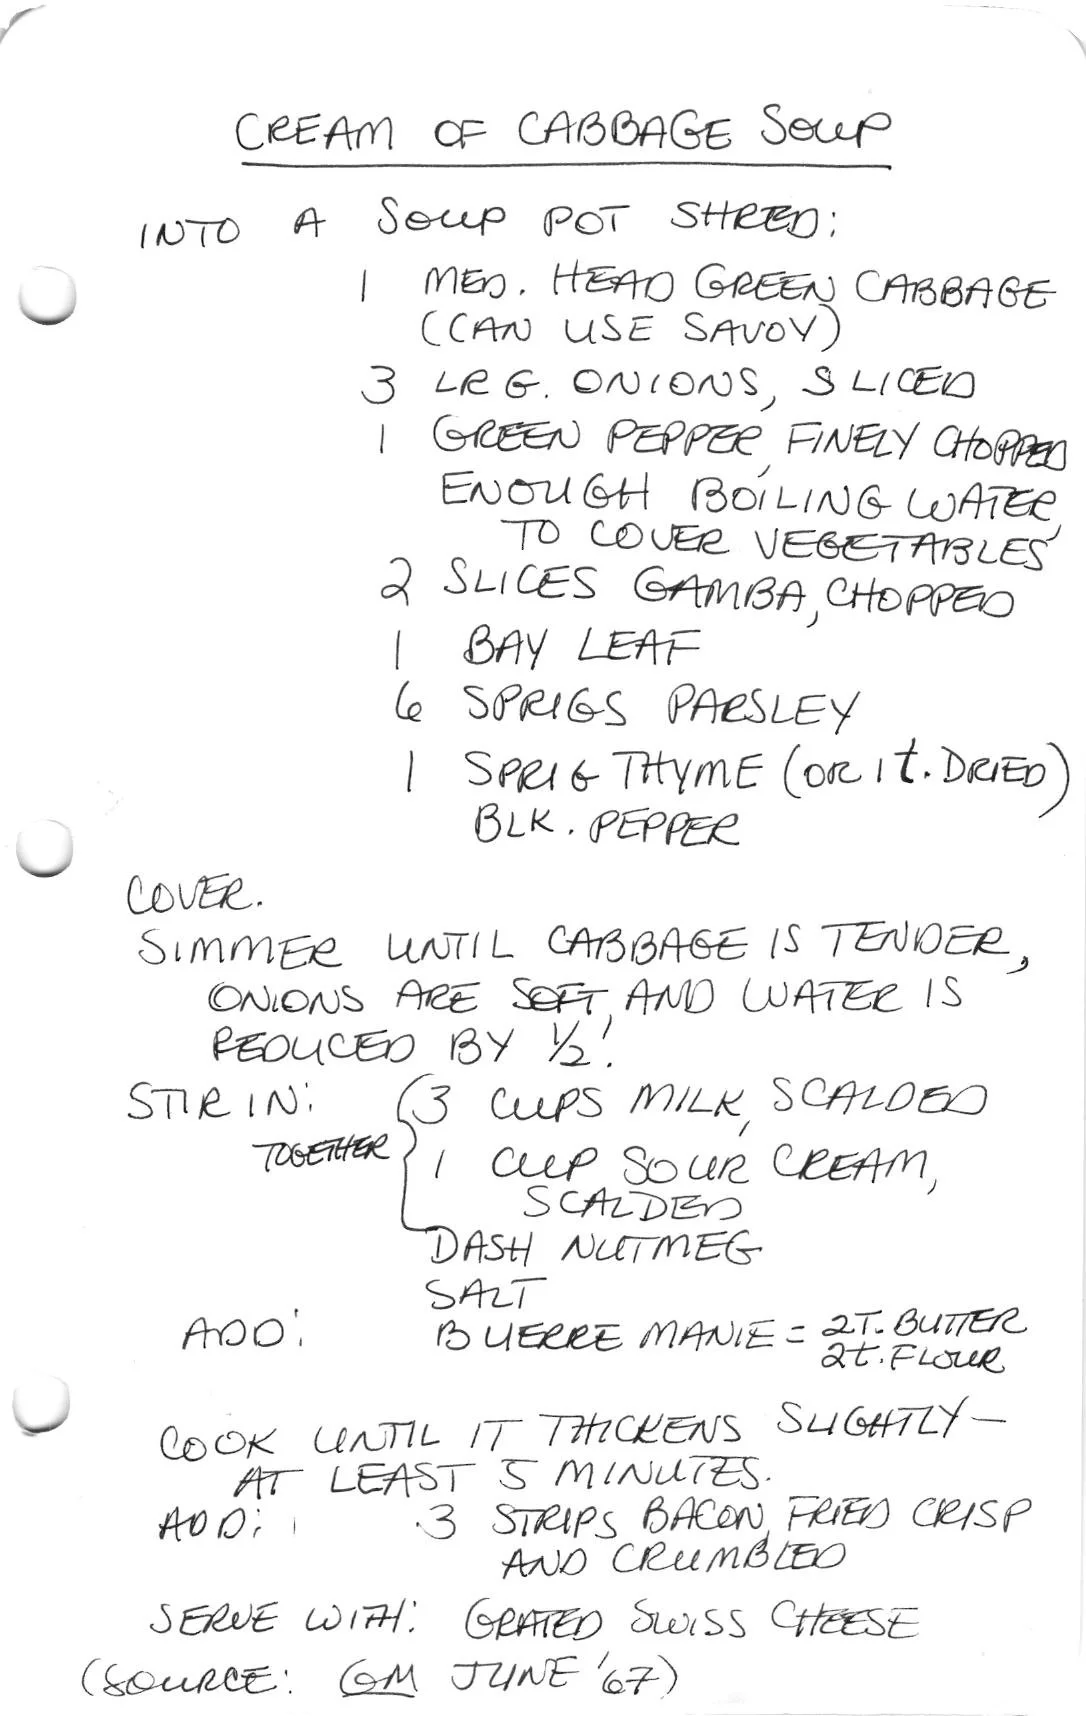 CREAM OF CABBAGE SOUP
INTO A SOUP POT SHRED:
1 MED. HEAD GREEN CABBAGE
(CAN USE SAVOY)
3 LRG. ONIONS, SLICED
1 GREEN PEPPER, FINELY CHOPPED
ENOUGH BOILING WATER,
TO COVER VEGETABLES
2 SLICES GAMBA, CHOPPED
1 BAY LEAF
6 SPRIGS PARSLEY
1 SPRIG THYME (OR 1 t. DRIED)
BLK. PEPPER
COVER.
SIMMER UNTIL CABBAGE IS TENDER,
ONIONS ARE SOFT, AND WATER IS
REDUCED BY 1/2.
STIR IN: 3 CUPS MILK, SCALDED
TOGETHER 1 CUP SOUR CREAM,
SCALDED
DASH NUTMEG
SALT
ADD: BUERRE MANIE = 2T. BUTTER
2t. FLOUR
COOK UNTIL IT THICKENS SLIGHTLY—
AT LEAST 5 MINUTES.
ADD: 3 STRIPS BACON, FRIED CRISP
AND CRUMBLED
SERVE WITH: GRATED SWISS CHEESE
(SOURCE: GM JUNE '67)